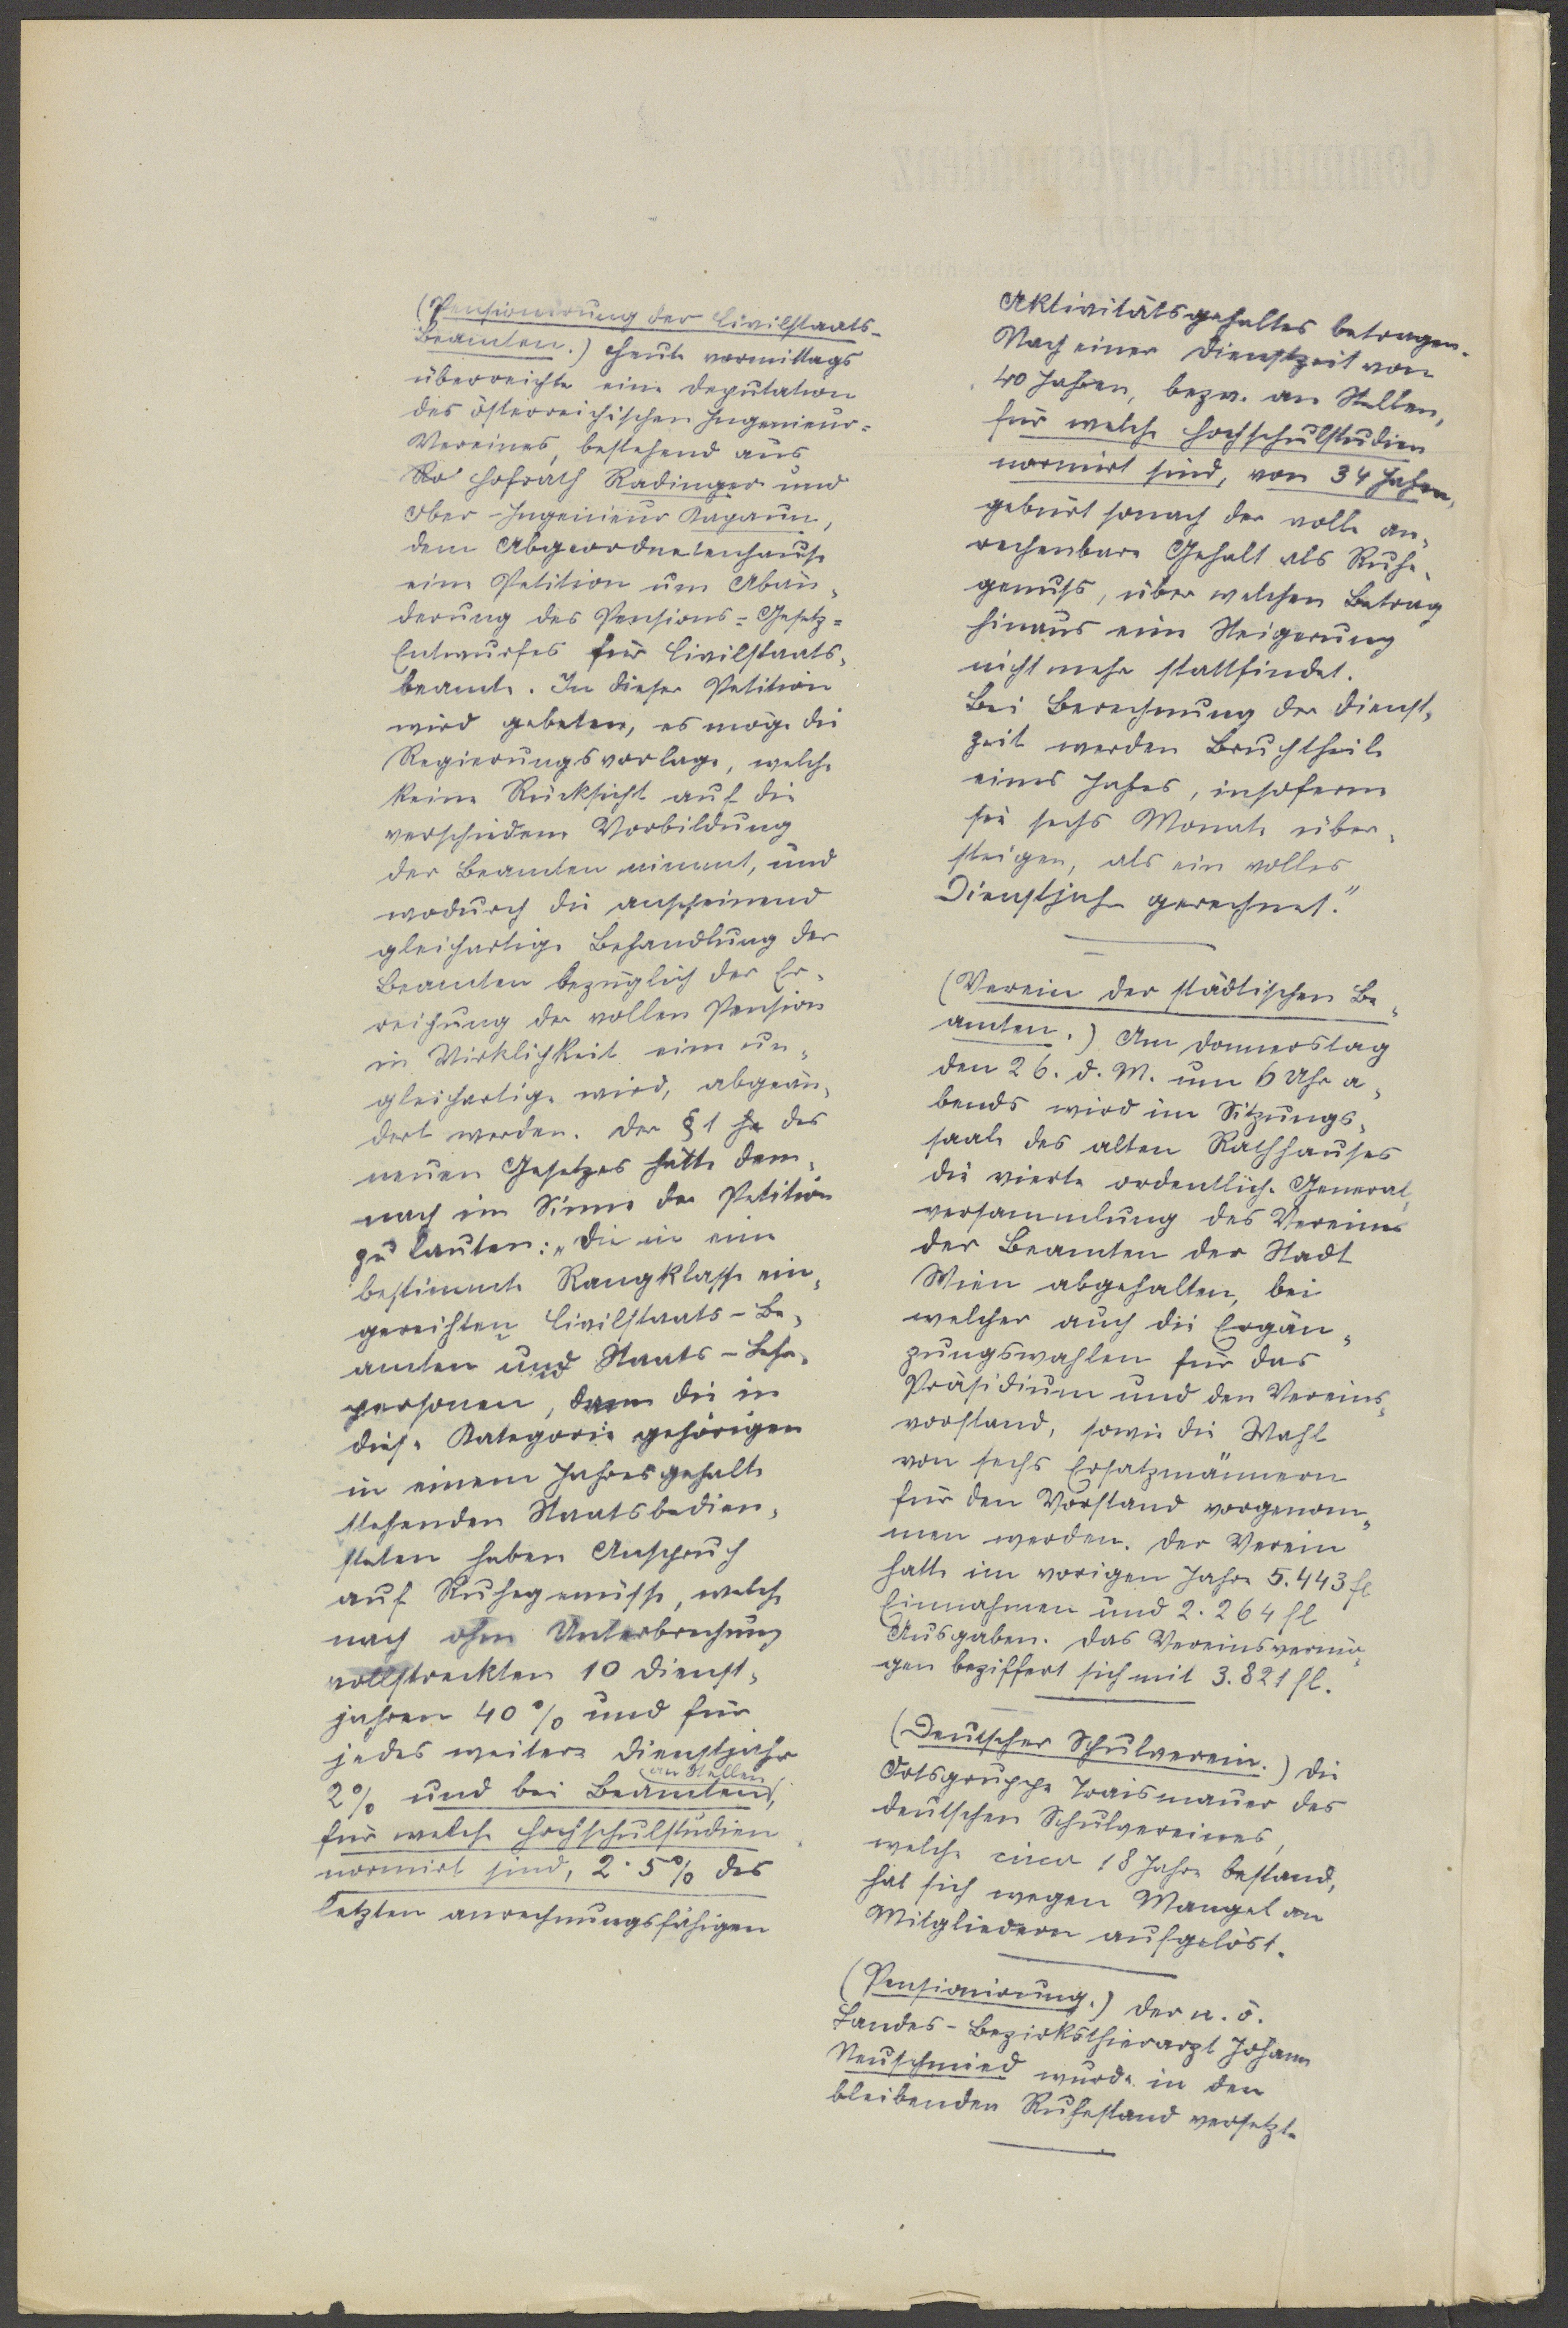 (Pensionirung der Civilstaats-
Beamten.) Heute vormittags
überreichte eine Deputation
des österreichischen Ingenieur-
Vereines, bestehend aus
Hofrath Radinger und
Ober-Ingenieur Kapaun,
dem Abgeordnetenhause
eine Petition um Abän-
derung des Pensions-Gesetz-
Entwurfes für Civilstaats-
beamte. In dieser Petition
wird gebeten, es möge die
Regierungsvorlage, welche
keine Rücksicht auf die
verschiedene Vorbildung
der Beamten nimmt, und
wodurch die anscheinend
gleichartige Behandlung der
Beamten bezüglich der Er-
reichung der vollen Pension
in Wirklichkeit eine un-
gleichartige wird, abgeän-
dert werden. Der § 1 des
neuen Gesetzes hätte dem-
nach im Sinne der Petition
zu lauten: „Die in eine
bestimmte Rangklasse ein-
gereihten Civilstaats-Be-
amten und Staats-Lehr-
personen, dann die in
diese Kategorie gehörigen
in einem Jahresgehalte
stehenden Staatsbedien-
steten haben Anspruch
auf Ruhegenüsse, welche
nach ohne Unterbrechung
vollstreckten 10 Dienst-
jahren 40% und für
jedes weitere Dienstjahr
2% und bei Beamten an Stellen,
für welche Hochschulstudien
normirt sind, 2·5% des
letzten anrechnungsfähigen
Aktivitätsgehaltes betragen.
Nach einer Dienstzeit von
40 Jahren, bezw. an Stellen,
für welche Hochschulstudien
normirt sind, von 34 Jahren,
gebürt sonach der volle an-
rechenbare Gehalt als Ruhe-
genuss, über welchen Betrag
hinaus eine Steigerung
nicht mehr stattfindet.
Bei Berechnung der Dienst-
zeit werden Bruchtheile
eines Jahres, insoferne
sie sechs Monate über-
steigen, als ein volles
Dienstjahr gerechnet."
(Verein der städtischen Be-
amten.) Am Donnerstag
den 26. d. M. um 6 Uhr a-
bends wird im Sitzungs-
saale des alten Rathhauses
die vierte ordentliche General-
versammlung des Vereines
der Beamten der Stadt
Wien abgehalten, bei
welcher auch die Ergän-
zungswahlen für das
Präsidium und den Vereins-
vorstand, sowie die Wahl
von sechs Ersatzmännern
für den Vorstand vorgenom-
men werden. Der Verein
hatte im vorigen Jahre 5.443 fl
Einnahmen und 2.264 fl
Ausgaben. Das Vereinsvermö-
gen beziffert sich mit 3.821 fl.
(Deutscher Schulverein.) Die
Ortsgruppe Traismauer des
deutschen Schulvereines,
welche circa 18 Jahre bestand,
hat sich wegen Mangel an
Mitgliedern aufgelöst.
(Pensionirung.) Der n. ö.
Landes-Bezirksthierarzt Johann
Neuschmied wurde in den
bleibenden Ruhestand versetzt.